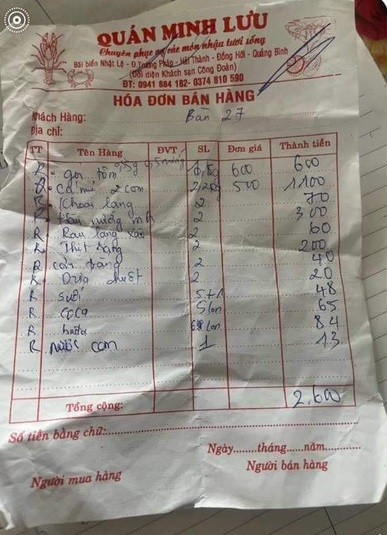 QUÁN MINH LƯU
Chuyên phục vụ các món nhậu tươi sống
Bãi biển Nhật Lệ - Đ.Trương Pháp - Hải Thành - Đồng Hới - Quảng Bình
(Đối diện Khách sạn Công Đoàn)
ĐT: 0941 884 182- 0374 810 590
HÓA ĐƠN BÁN HÀNG
Khách Hàng: Bàn 27
Địa chỉ:
TT Tên Hàng ĐVT SL Đơn giá Thành tiền
R tôm 600 600
R 2 con 500 1100
R Khoai lang 2 70
R nướng 2 300
R Rau lang xào 2 60
R Thịt 2 200
R 2 40
R Dưa chuột 2 20
R suối 5+1 48
R coca 5 lon 65
R lon 84
R nước cam 1 13
Tổng cộng: 2.600
Số tiền bằng chữ:
Ngày........tháng......năm..........
Người mua hàng Người bán hàng